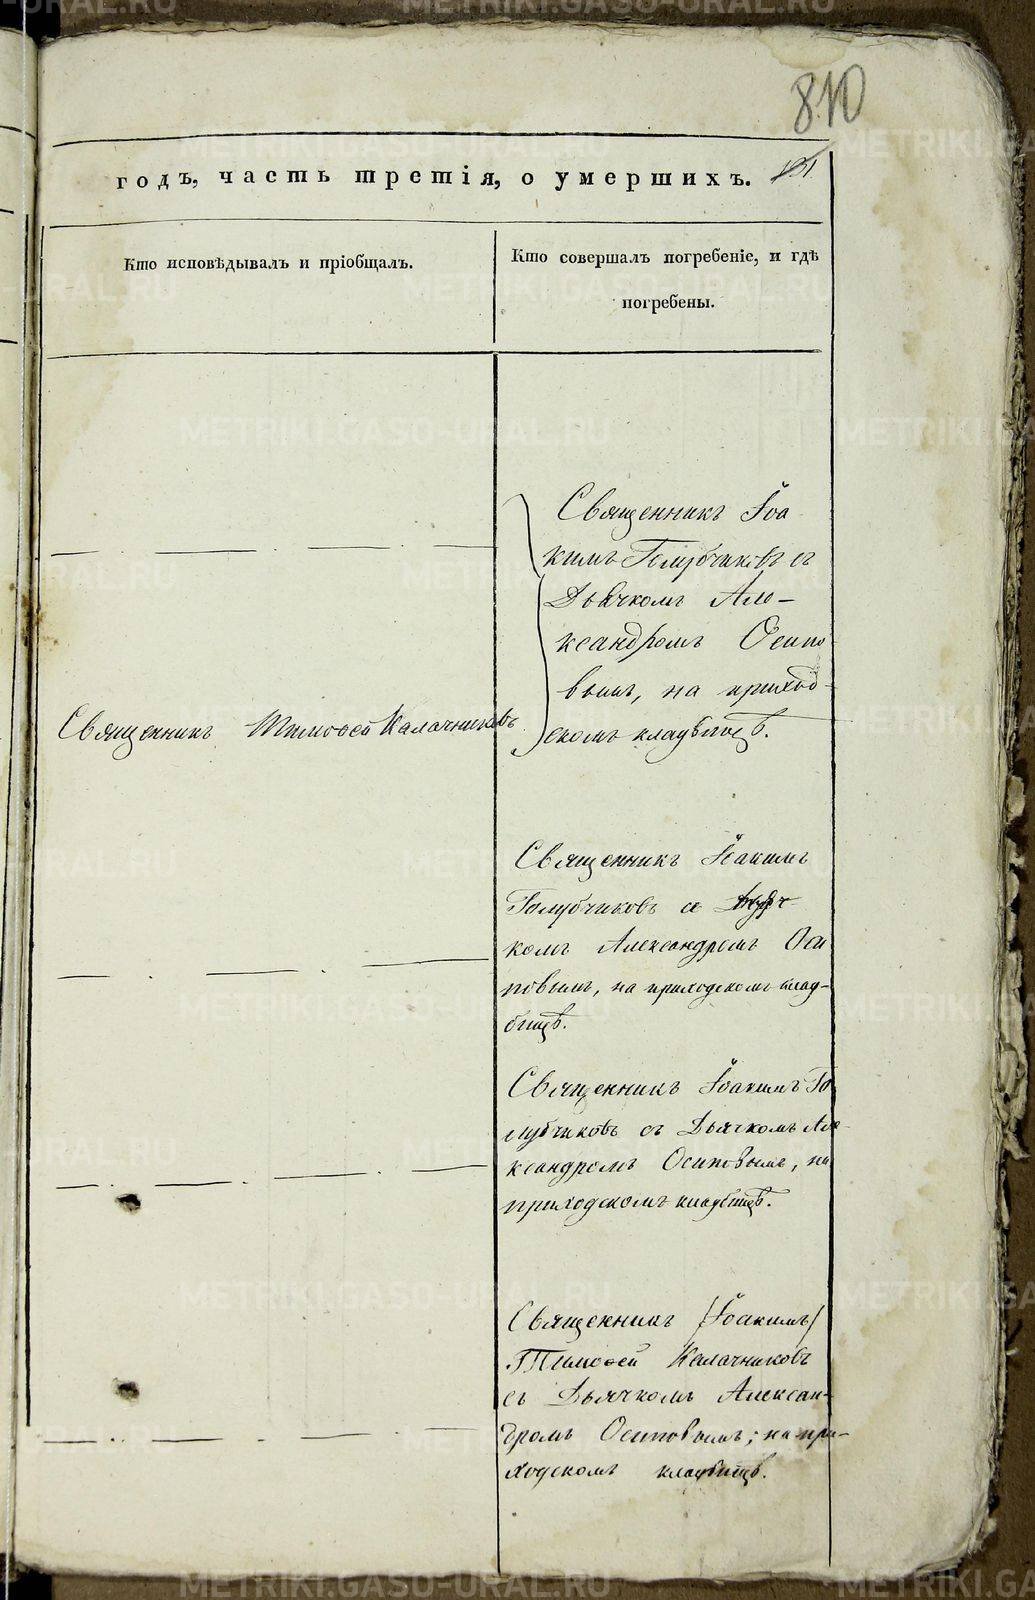 810
годъ, часть третія, о умершихъ.
Кто исповѣдывалъ и пріобщалъ.
Кто совершалъ погребеніе, и гдѣ
погребены.
Священникъ Іоа
кимъ Голубчиковъ съ
Дьячкомъ Але-
ксандромъ Осипо-
вымъ, на приход-
скомъ кладбищѣ.
Священникъ Тимоѳей Калачниковъ
Священникъ Іоакимъ
Голубчиковъ съ Дьяч-
комъ Александромъ Оси
повымъ, на приходскомъ клад-
бищѣ.
Священникъ Іоакимъ Го
лубчиковъ съ Дьячкомъ Але-
ксандромъ Осиповымъ, на
приходскомъ кладбищѣ.
Священникъ (Іоакимъ)
Тимоѳей Калачниковъ
съ Дьячкомъ Алексан-
дромъ Осиповымъ; на при-
ходскомъ кладбищѣ.
METRIKI.GASO-URAL.RU